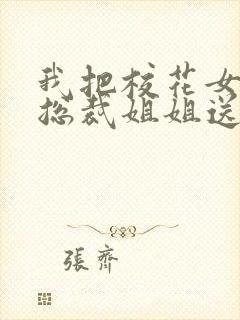 我把校花女
总裁姐姐送
張齊